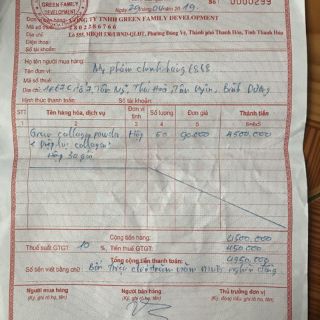 GREEN FAMILY
DEVELOPMENT
Ngày 29 tháng 04 năm 2019.
Số: 0000299
Đơn vị bán hàng: CÔNG TY TNHH GREEN FAMILY DEVELOPMENT
Mã số thuế: 2802586766
Phường Đông Vệ, Thành phố Thanh Hóa, Tỉnh Thanh Hóa
Điện thoại:
Số tài khoản:
Họ tên người mua hàng: Mỹ phẩm chính hãng 6868
Mã số thuế:
Thái Hoà, Tân Uyên, Bình Dương
Hình thức thanh toán: Số tài khoản:
STT Tên hàng hóa, dịch vụ Đơn vị tính Số lượng Đơn giá Thành tiền
1 2 3 4 5 6=4x5
Green collagen powder Hộp 50 90.000 4500.000
& Diệp lục collagen
Hộp 30 gói
Cộng tiền hàng: 4500.000
Thuế suất GTGT: 10 %, Tiền thuế GTGT: 450.000
Tổng cộng tiền thanh toán: 4950.000
Số tiền viết bằng chữ: Bốn triệu chín trăm năm mươi nghìn đồng.
Người mua hàng Người bán hàng Thủ trưởng đơn vị
(Ký, ghi rõ họ, tên) (Ký, ghi rõ họ, tên) (Ký, ghi rõ họ, tên)